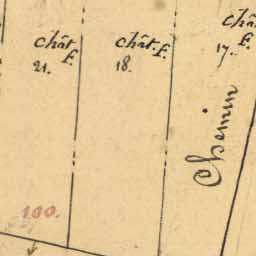 Chât
f.
21.
Chât
f.
18.
Châ
f.
17.
Chemin
100.